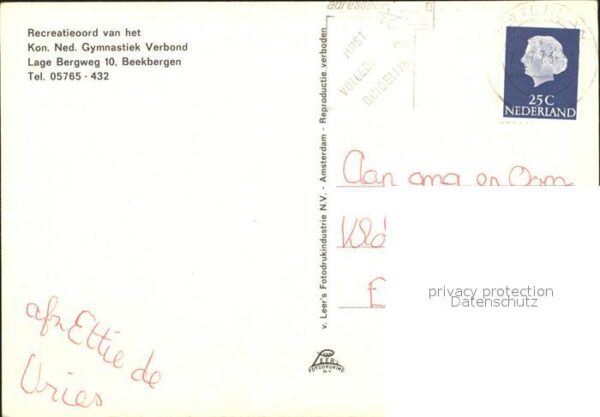 Recreatieoord van het
Kon. Ned. Gymnastiek Verbond
Lage Bergweg 10, Beekbergen
Tel. 05765 - 432
afz Ettie de
Vries
v. Leer's Fotodrukindustrie N.V. - Amsterdam - Reproductie verboden
LEER'S
FOTODRUKIND
N.V.
adresseer
JUIST
VOLLEDIG
EN
DUIDELIJK
25C
NEDERLAND
Aan oma en Oom
privacy protection
Datenschutz